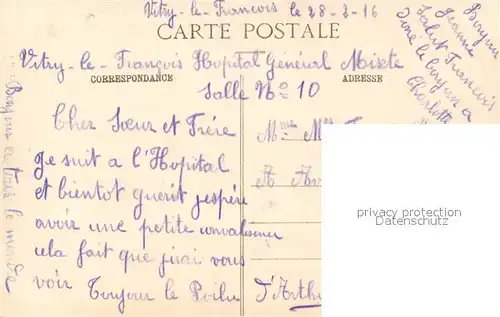 Vitry-le-Francois le 28-2-16
CARTE POSTALE
Vitry-le-François Hopital Genéral Mixte
CORRESPONDANCE
ADRESSE
Salle No 10
Cher Sœur et Frére
Je suit a l'Hopital
et bientot guerit j'espére
avoir une petite convalisence
cela fait que j'irai vous
voir Toujour le Poilu
Bonjour a tous le monde
Bonjour
Jeanne
Salut Francois
Charlotte
privacy protection
Datenschutz
d'Arth